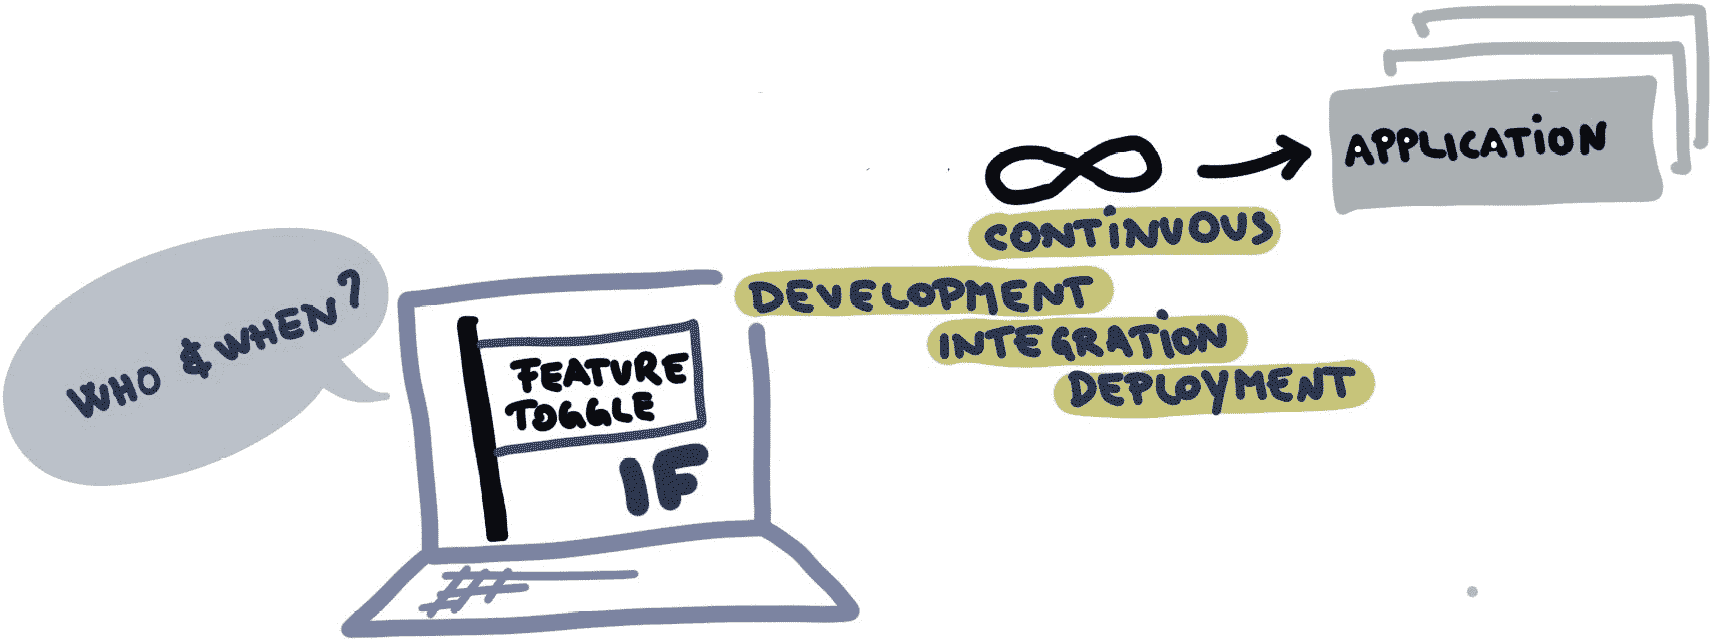 WHO & WHEN?
FEATURE
TOGGLE
IF
CONTINUOUS
DEVELOPMENT
INTEGRATION
DEPLOYMENT
APPLICATION